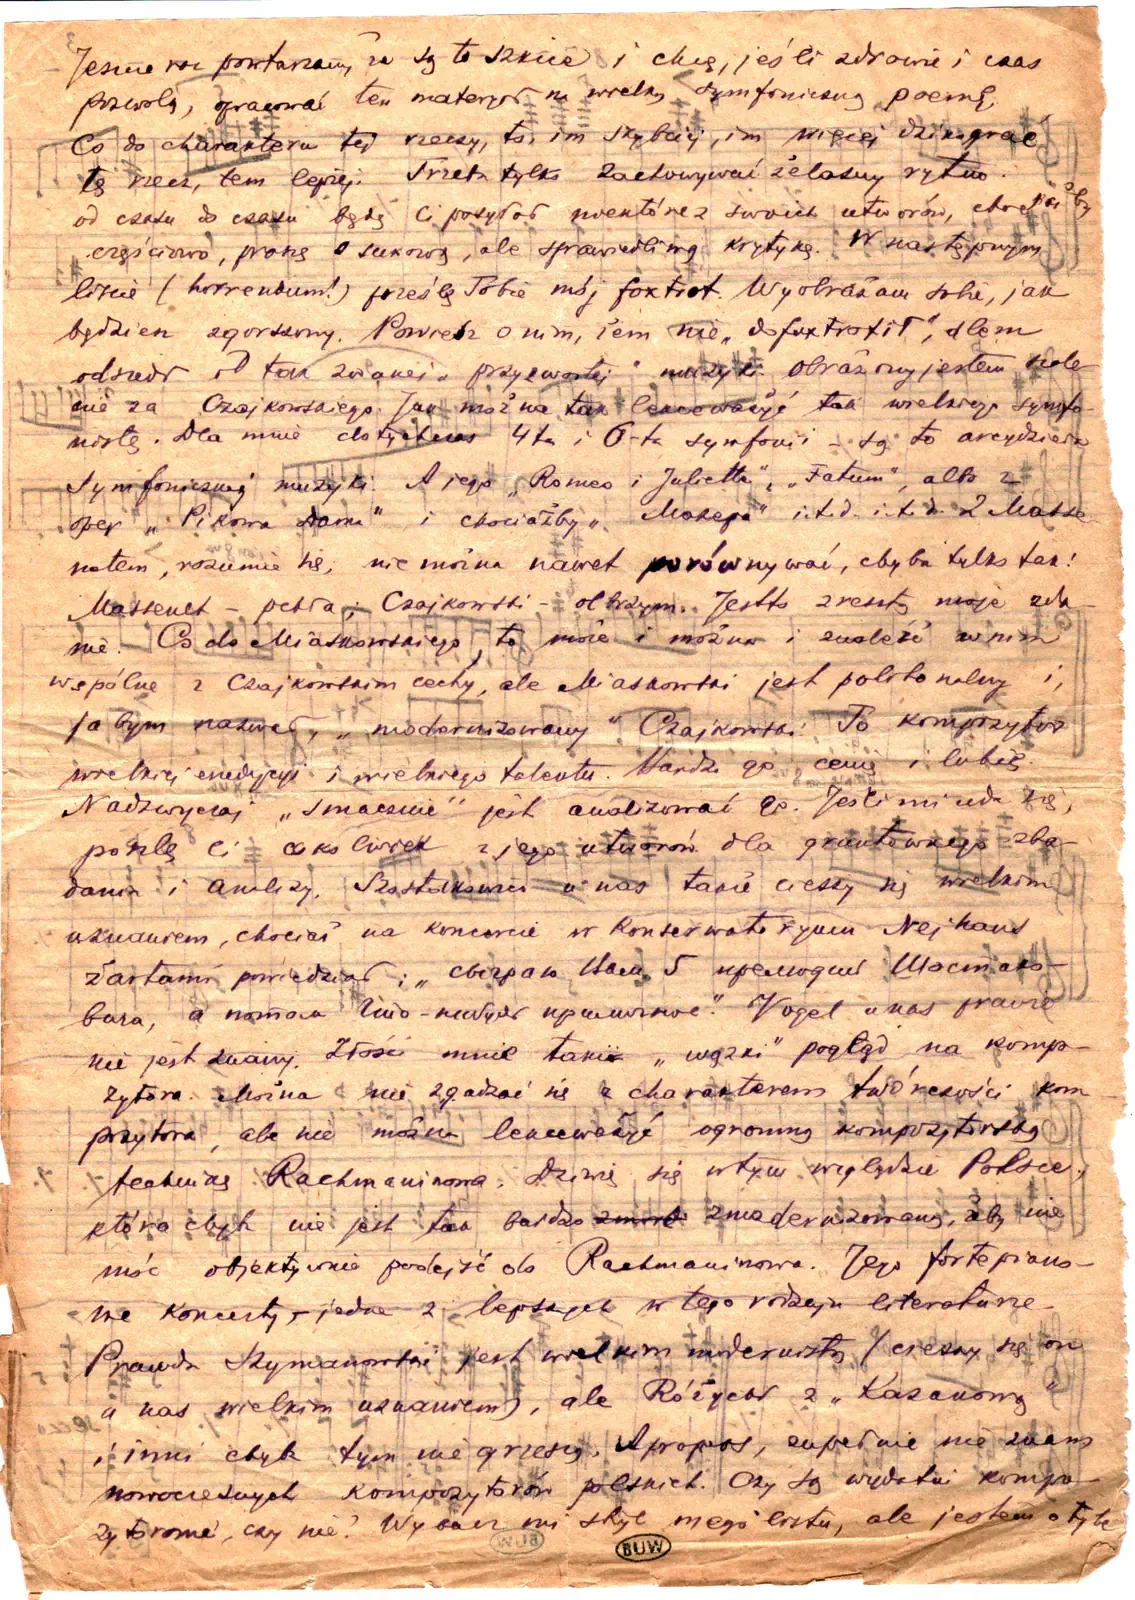 Jeszcze raz powtarzam, że są to szkice i chcę, jeśli zdrowie i czas
pozwolą, opracować ten materjał na wielką symfoniczną poemę.
Co do charakteru tej rzeczy, to im szybciej, im więcej dziko grać
tę rzecz, tem lepiej. Trzeba tylko zachowywać żelazny rytm.
od czasu do czasu będę Ci posyłał niektóre z swoich utworów, choć
częściowo, proszę o surową, ale sprawiedliwą krytykę. W następnym
liście (horrendum!) prześlę Tobie mój foxtrot. Wyobrażam sobie, jak
będziesz zgorszony. Powiesz o nim, żem nie „dofoxtrocił", alem
odszedł od tak zwanej „przyzwoitej" muzyki. Obrażony jestem szale-
nie za Czajkowskiego. Jak można tak lekceważyć tak wielkiego symfo-
nistę. Dla mnie dotychczas 4ta i 6-ta symfonii - są to arcydzieła
symfonicznej muzyki. A jego „Romeo i Julietta", „Fatum", albo z
oper „Pikowa Dama" i chociażby „Mazepa" i.t.d. i.t.d. Z Masse-
netem, rozumie się, nie można nawet porównywać, chyba tylko tak:
Massenet - pchła, Czajkowski - olbrzym. Jestto zresztą moje zda-
nie. Co do Miaskowskiego, to może i można i znaleźć w nim
wspólne z Czajkowskim cechy, ale Miaskowski jest politonalny i,
ja bym nazwał, „modernizowany" Czajkowski. To kompozytor
wielkiej erudycji i wielkiego talentu. Bardzo go cenię i lubię.
Nadzwyczaj „smacznie" jest analizować go. Jeśli mi uda się,
poszlę Ci cokolwiek z jego utworów dla gruntownego zba-
dania i analizy. Szostakowicz u nas także cieszy się wielkim
uznaniem, chociaż na koncercie w Konserwatoryum Nejhaus
żartami powiedział: „сыграю Вам 5 прелюдий Шостако-
вича, а потом что-нибудь приличное". Vogel u nas prawie
nie jest znany. Złości mnie taki „wązki" pogląd na komp-
zytora. Można nie zgadzać się z charakterem twórczości kom
pozytora, ale nie można lekceważyć ogromną kompozytorską
technikę Rachmaninowa. Dziwię się w tym względzie Polsce,
która chyba nie jest tak bardzo zmodernizowaną, żeby nie
móc objektywnie podejść do Rachmaninowa. Jego fortepiano-
we koncerty, - jedne z lepszych w tego rodzaju literaturze.
Prawda Szymanowski jest wielkim modernistą (cieszy się on
u nas wielkim uznaniem), ale Różycki z „Kazanową"
i inni chyba tym nie grzeszą. Apropos, zupełnie nie znam
nowoczesnych kompozytorów polskich. Czy są wydatni kompo-
zytorowie, czy nie? Wybacz mi styl mego listu, ale jestem o tyle
BUW